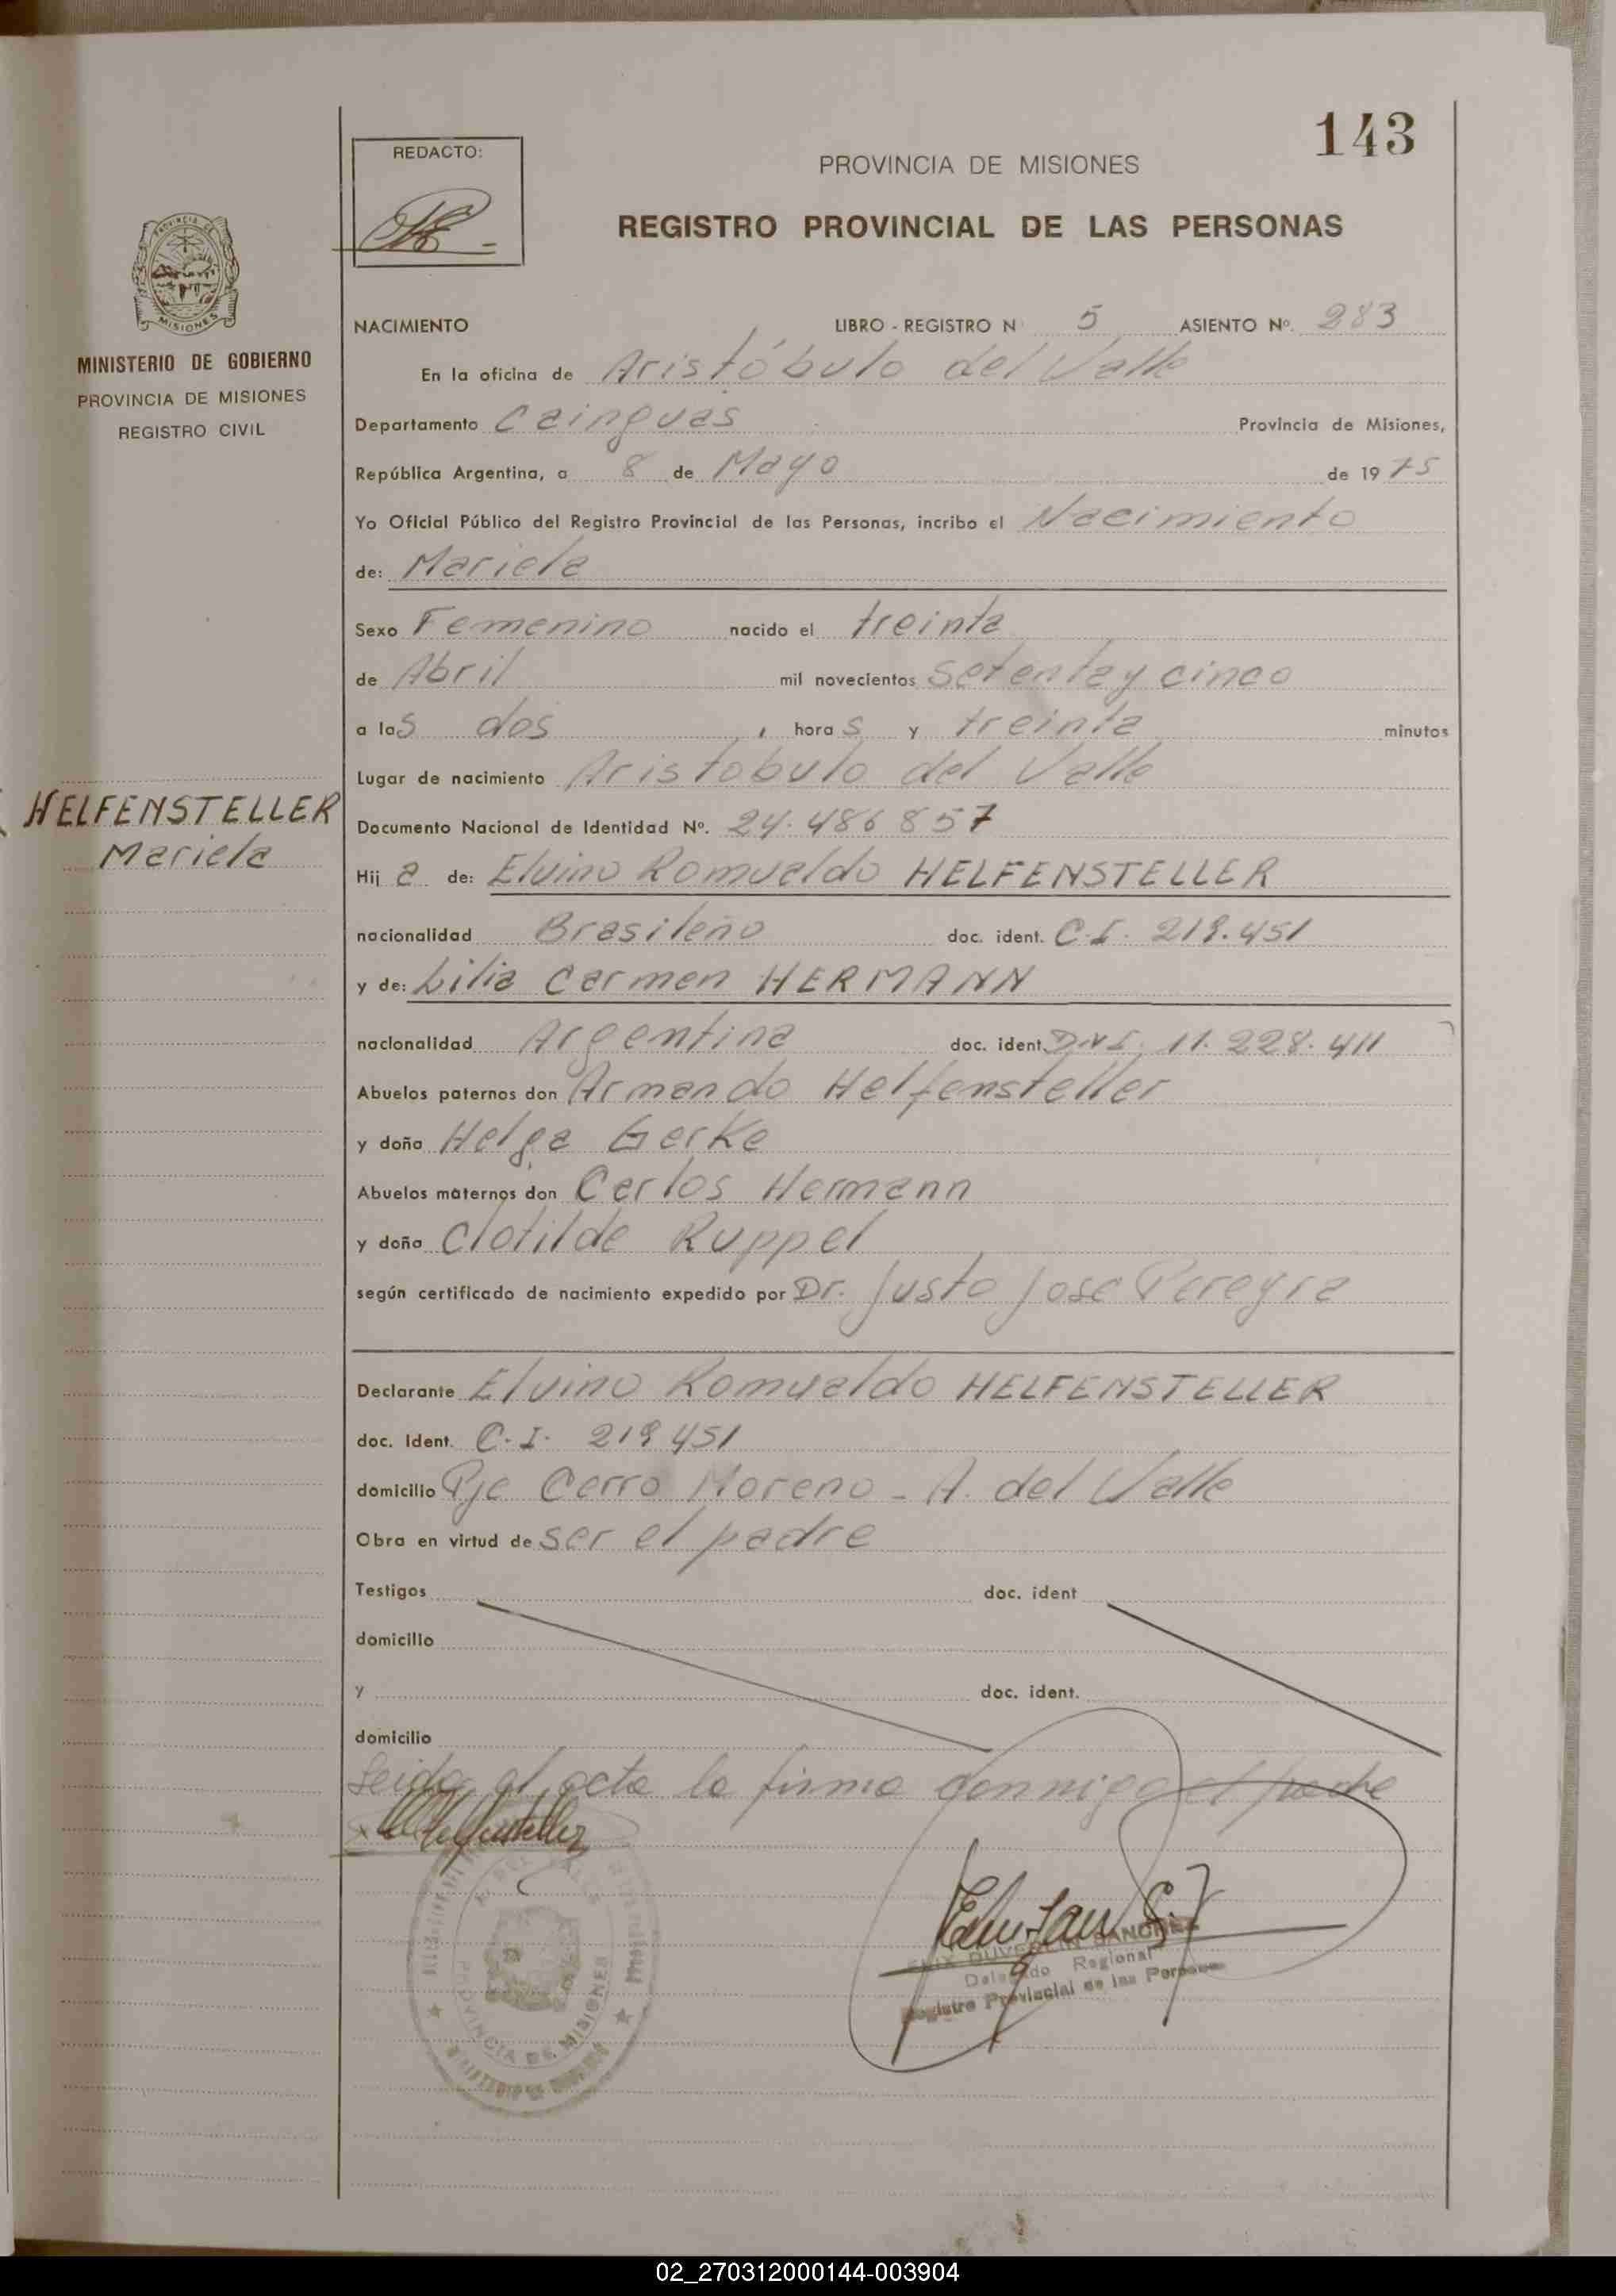 143
REDACTO:
PROVINCIA DE MISIONES
REGISTRO PROVINCIAL DE LAS PERSONAS
PROVINCIA DE
MISIONES
MINISTERIO DE GOBIERNO
PROVINCIA DE MISIONES
REGISTRO CIVIL
NACIMIENTO LIBRO - REGISTRO N° 5 ASIENTO Nº. 283
En la oficina de Aristóbulo del Valle
Departamento Cainguas Provincia de Misiones,
República Argentina, a 8 de Mayo de 1975
Yo Oficial Público del Registro Provincial de las Personas, incribo el Nacimiento
de: Mariela
Sexo Femenino nacido el treinta
de Abril mil novecientos setenta y cinco
a las dos , horas y treinta minutos
Lugar de nacimiento Aristobulo del Valle
HELFENSTELLER
Mariela
Documento Nacional de Identidad Nº. 24.486857
Hija de: Elvino Romualdo HELFENSTELLER
nacionalidad Brasileño doc. ident. C.I. 219.451
y de: Lilia Carmen HERMANN
nacionalidad Argentina doc. ident. D.N.I. 11.228.411
Abuelos paternos don Armando Helfensteller
y doña Helga Gerke
Abuelos maternos don Carlos Hermann
y doña Clotilde Ruppel
según certificado de nacimiento expedido por Dr. Justo Jose Pereyra
Declarante Elvino Romualdo HELFENSTELLER
doc. Ident. C.I. 219451
domicilio Pje Cerro Moreno - A. del Valle
Obra en virtud de ser el padre
Testigos doc. ident
domicilio
y doc. ident.
domicilio
Leida el acta la firma conmigo el padre
Helfensteller
SANCHEZ
Delegado Regional
Registro Provincial de las Personas
A. DEL VALLE
PROVINCIA DE MISIONES
02_270312000144-003904